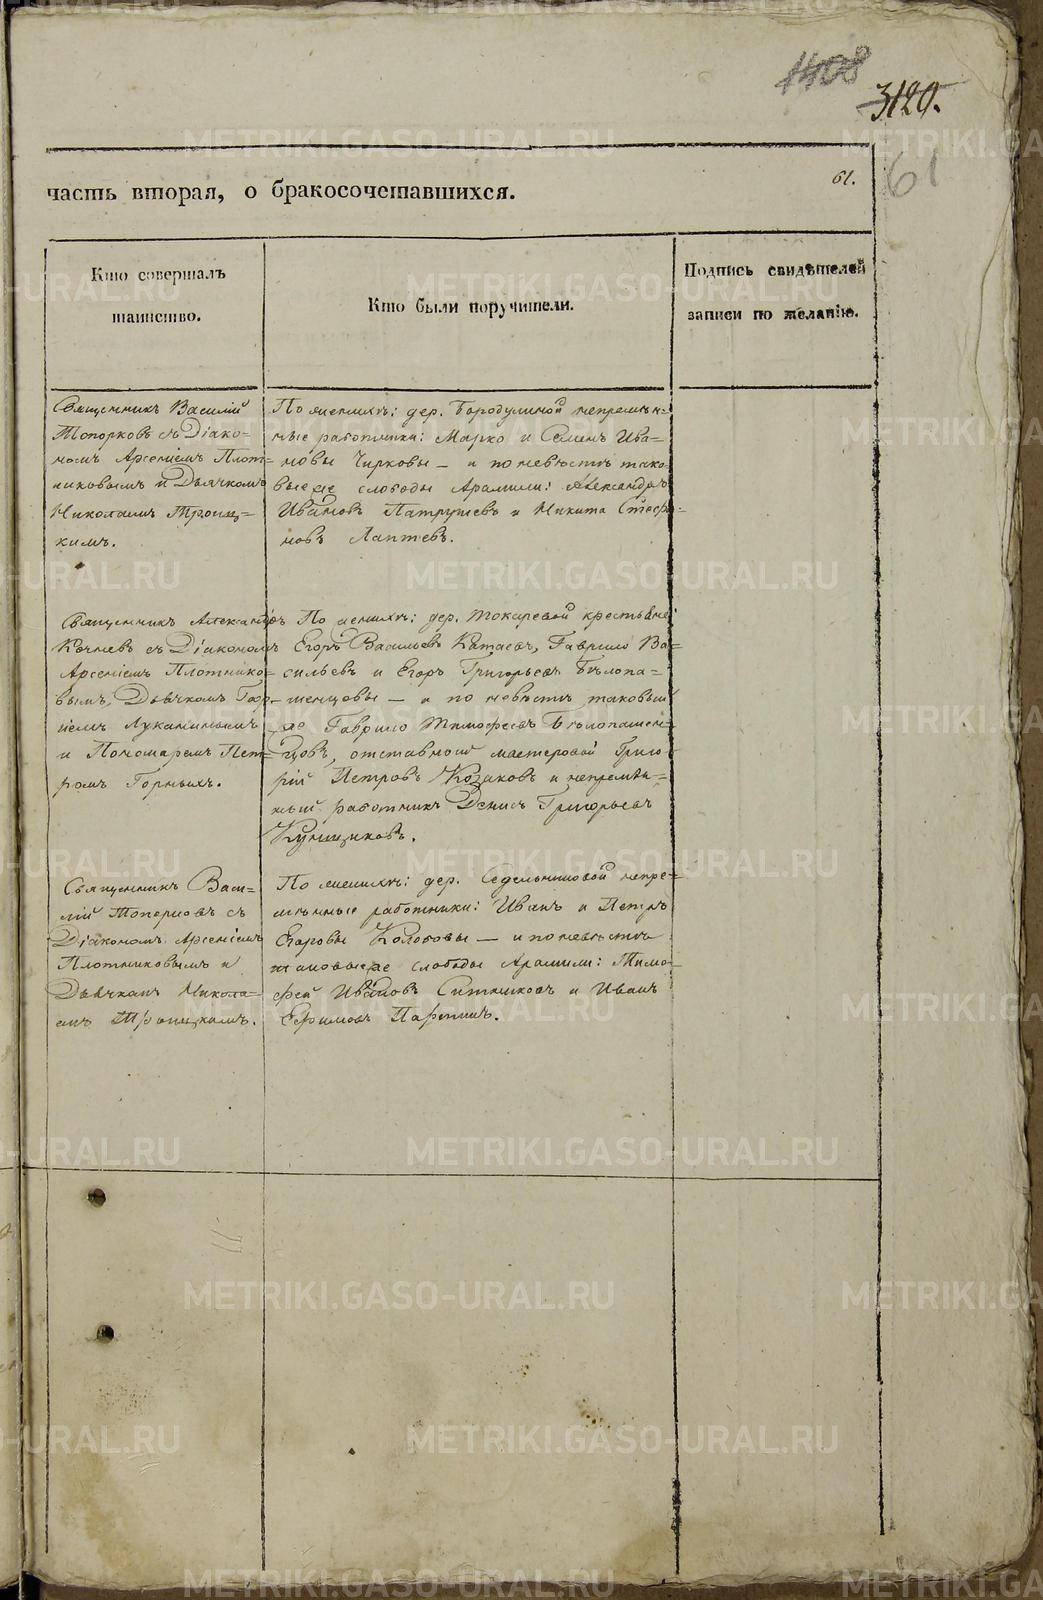 1408
3120.
61
часть вторая, о бракосочетавшихся.
61.
Кто совершалъ
таинство.
Кто были поручители.
Подпись свидѣтелей
записи по желанію.
Священникъ Василій
Топорковъ съ Діако-
номъ Арсеніемъ Плот-
никовымъ и Дьячкомъ
Николаемъ Троиц-
кимъ.
По женихѣ: дер. Бородулиной непремѣн-
ные работники: Марко и Семенъ Ива-
новы Чирковы — и по невѣстѣ тако-
вые же слободы Арамили: Александръ
Ивановъ Патрушевъ и Никита Стефа-
новъ Лаптевъ.
Священникъ Александръ
Кочневъ съ Діакономъ
Арсеніемъ Плотнико-
вымъ, Дьячкомъ
Луканинымъ
и Пономаремъ Пет-
ромъ Горныхъ.
По женихѣ: дер. Токаревой крестьяне:
Егоръ Васильевъ Катаевъ, Гаврило Ва-
сильевъ и Егоръ Григорьевъ Бѣлопа-
шенцовы — и по невѣстѣ таковый
же Гаврило Тимофеевъ Бѣлопашен-
цовъ, отставной мастеровой Григо-
рій Петровъ Козаковъ и непремѣн-
ный работникъ Денисъ Григорьевъ
Кунщиковъ.
Священникъ Васи-
лій Топорковъ съ
Діакономъ Арсеніемъ
Плотниковымъ и
Дьячкомъ Никола-
емъ Троицкимъ.
По женихѣ: дер. Седельниковой непре-
мѣнные работники: Иванъ и Петръ
Егоровы Колобовы — и по невѣстѣ
таковые же слободы Арамили: Тимо-
фей Ивановъ Ситниковъ и Иванъ
Ефимовъ Парфинъ.
METRIKI.GASO-URAL.RU